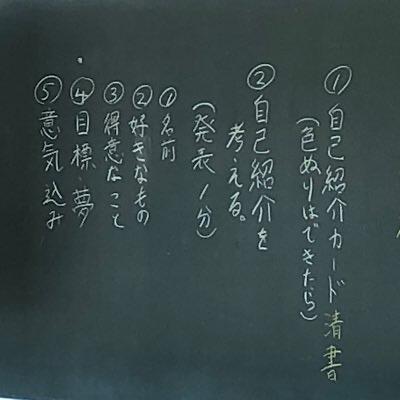 ①自己紹介カード清書
(色ぬりはできたら)
②自己紹介を
考える。
(発表1分)
①名前
②好きなもの
③得意なこと
④目標・夢
⑤意気込み